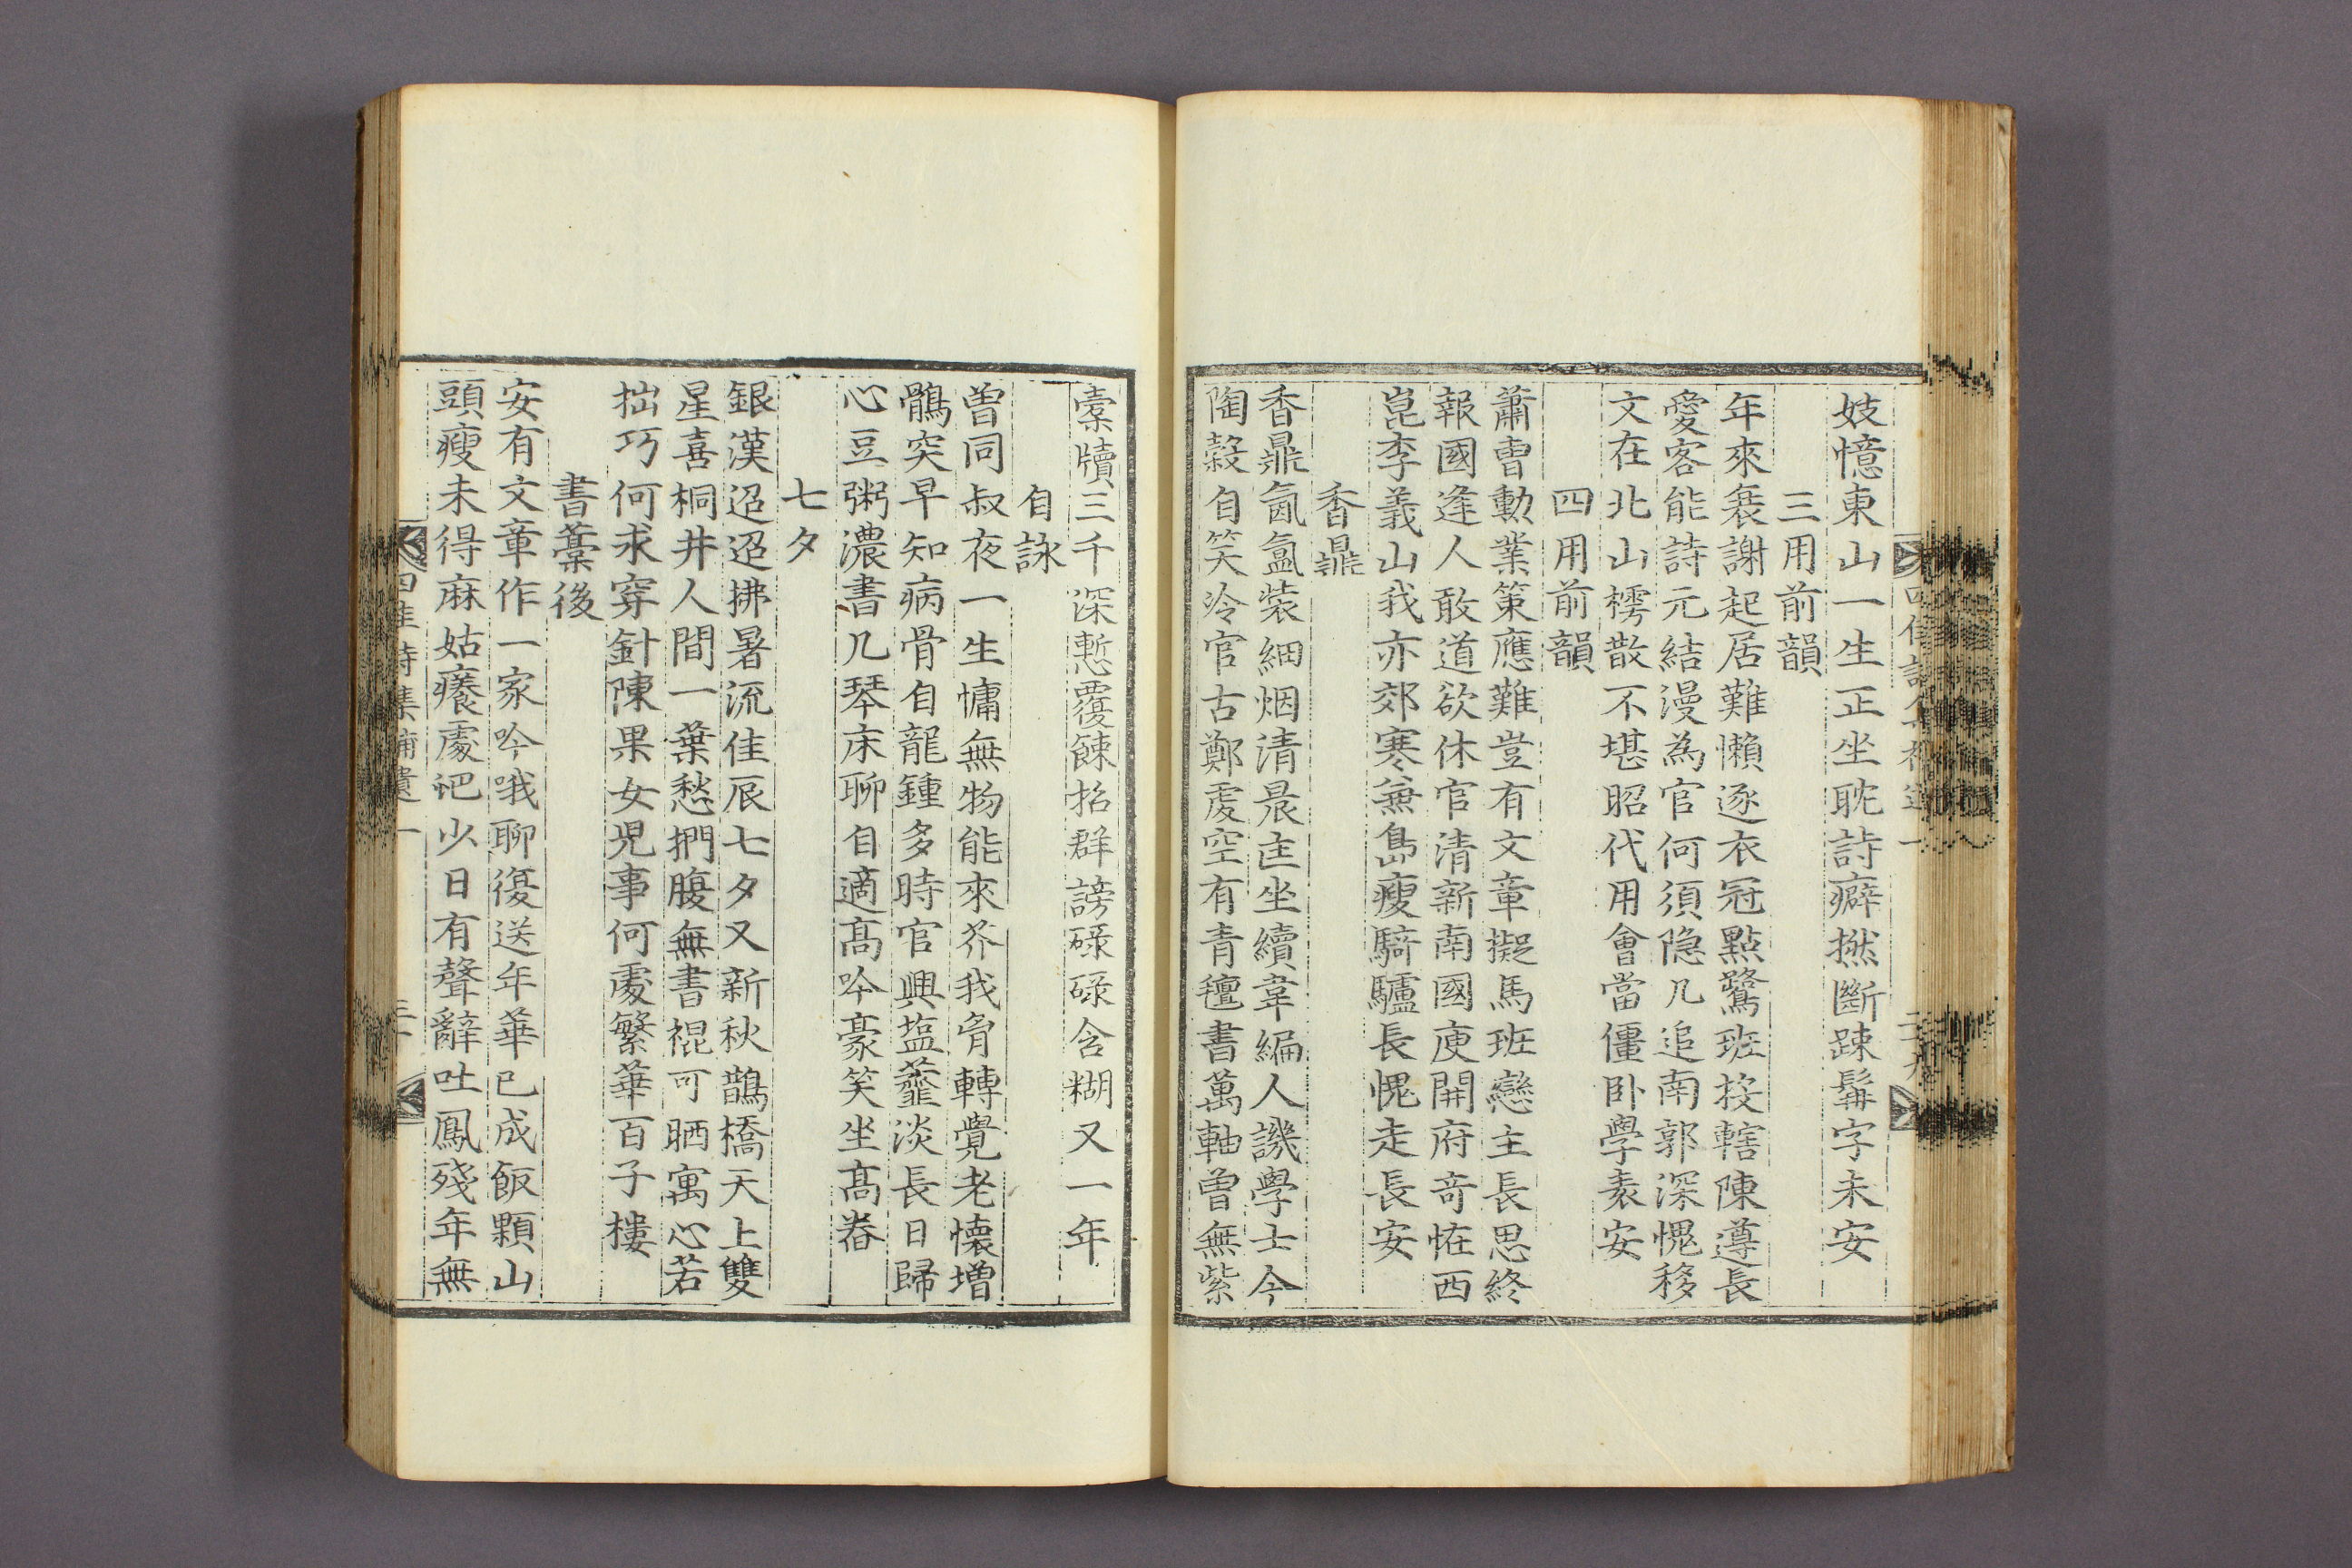 妓憶東山一生正坐耽詩癖撚斷踈髯字未安
三用前韻
年來衰謝起居難懶逐衣冠點鷺班投轄陳遵長
愛客能詩元結漫為官何須隐几追南郭深愧移
文在北山樗散不堪昭代用會當僵卧學袁安
四用前韻
蕭曺勳業策應難豈有文章擬馬班戀主長思終
報國逢人敢道欲休官清新南國庾開府奇恠西
崑李義山我亦郊寒兼島瘦騎驢長愧走長安
香鼎
香鼎氤氳裝細烟清晨㞷坐續韋編人譏學士今
陶穀自笑冷官古鄭䖏空有青氊書萬軸曾無紫
槖牘三千深慙覆餗招群謗碌碌含糊又一年
自詠
曾同叔夜一生慵無物能來芥我胷轉覺老懷增
鶻突早知病骨自龍鍾多時官興塩虀淡長日歸
心豆粥濃書几琴床聊自適高吟豪笑坐高舂
七夕
銀漢迢迢拂暑流佳辰七夕又新秋鵲橋天上雙
星喜桐井人間一葉愁捫腹無書裩可晒寓心若
拙巧何求穿針陳果女児事何䖏繁華百子樓
書藁後
安有文章作一家吟哦聊復送年華已成飯顆山
頭瘦未得麻姑癢䖏祀少日有聲辭吐鳳殘年無
四佳詩集補遺一